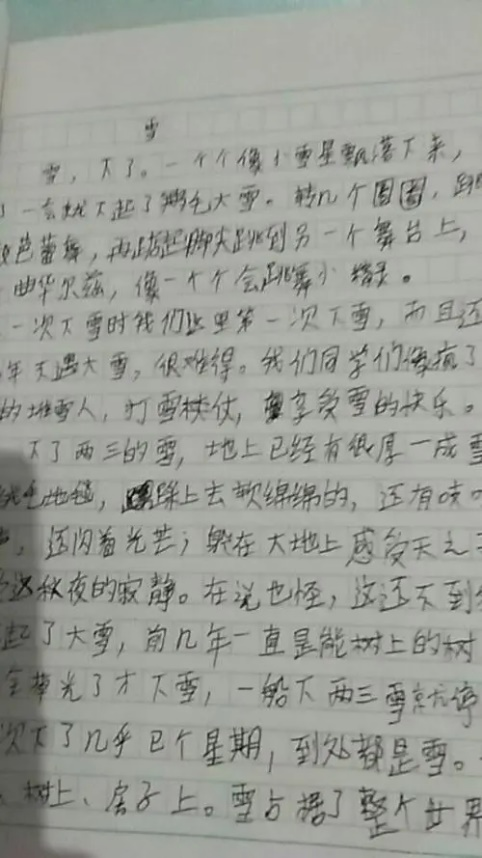 雪
雪，下了。一个个像小雪星飘落下来，
一会就下起了鹅毛大雪。转几个圆圈，跳
芭蕾舞，再踮起脚尖跳到另一个舞台上，
曲华尔兹，像一个个会跳舞小精灵。
一次下雪时我们这里第一次下雪，而且还
年天遇大雪，很难得。我们同学们像疯了
的堆雪人，打雪仗，享受雪的快乐。
下了两三的雪，地上已经有很厚一成雪
毛地毯，踩上去软绵绵的，还有吱
，还闪着光芒；躺在大地上感受天之
秋夜的寂静。在说也怪，这还不到
起了大雪，前几年一直是能树上的树
全掉光了才下雪，一般下两三雪就停
次下了几乎已个星期，到处都是雪。
、树上、房子上。雪占据了整个世界